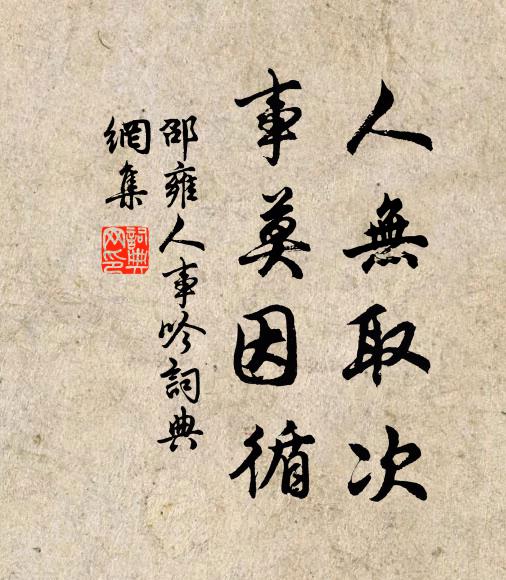 人無取次
事莫因循
邵雍人事吟詞典
網集
詞典
网印